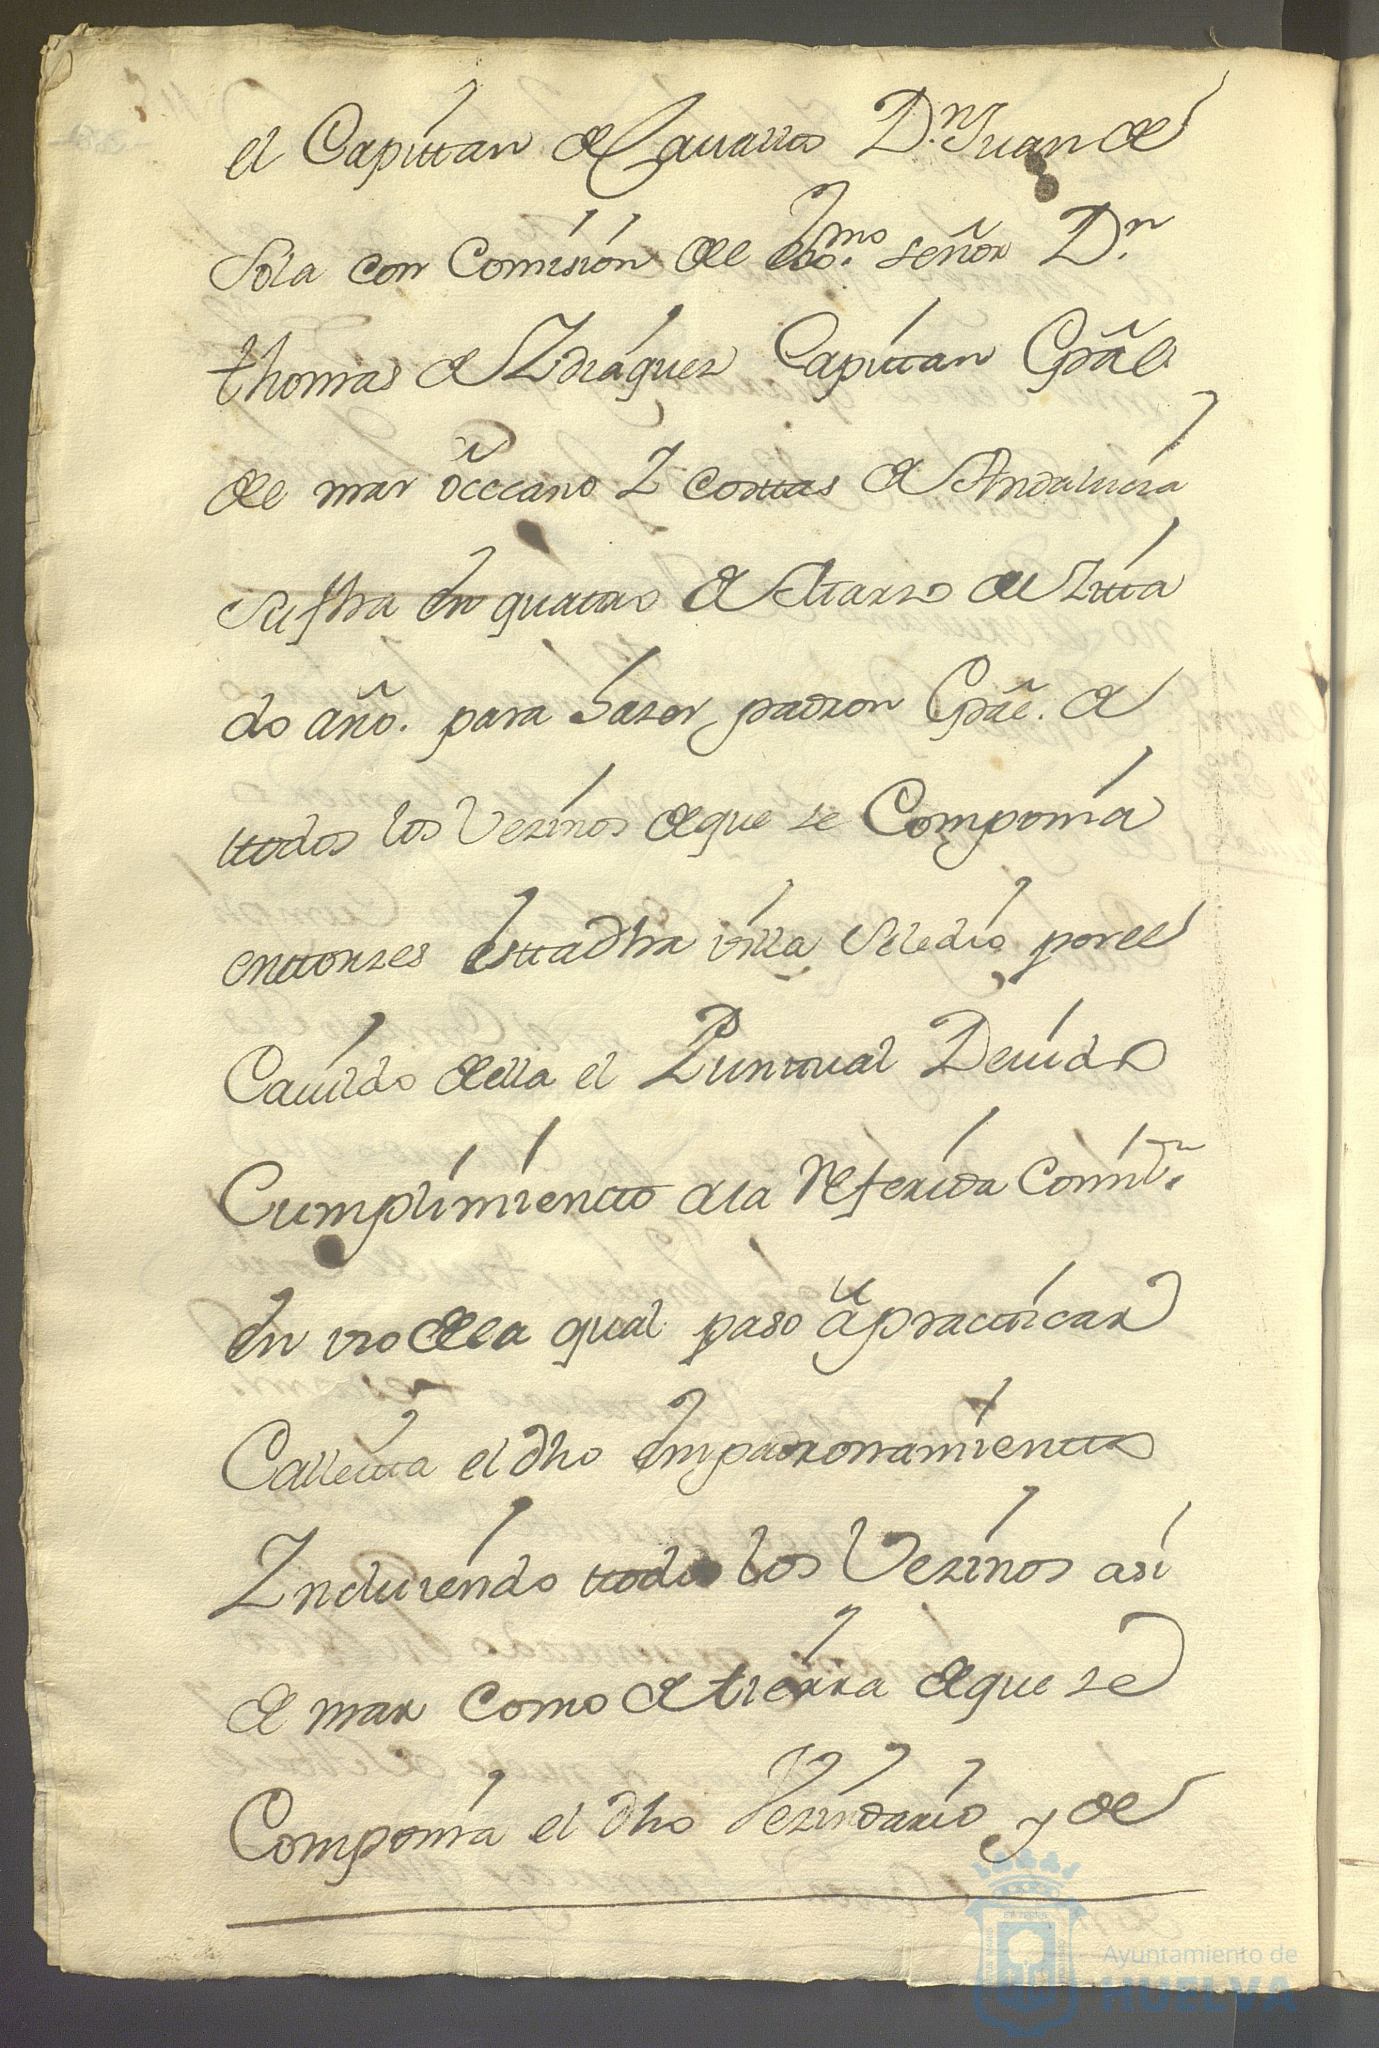 el Capittan de Cauallos D.n Juan de
Sola con Comision del exmo. señor D.n
thomas de Ydiaquez Capittan Gräl.
del mar occeano Y costtas de Andaluzia
su fha en quattro de Marzo del zitta
do año. para hazer padron Gräl. de
ttodos los Vezinos de que se Componia
enttonzes estta dha villa se le dio por el
Cauildo della el Punttual Deuido
Cumplimientto a la referida Comis.n
en vso de la qual paso a practticar
Calletta el dho empadronamientto
Ynclui­endo ttodos los Vezinos asi
de mar como de tierra de que se
Componia el dho Vezindario y de
Ayuntamiento de
HUELVA